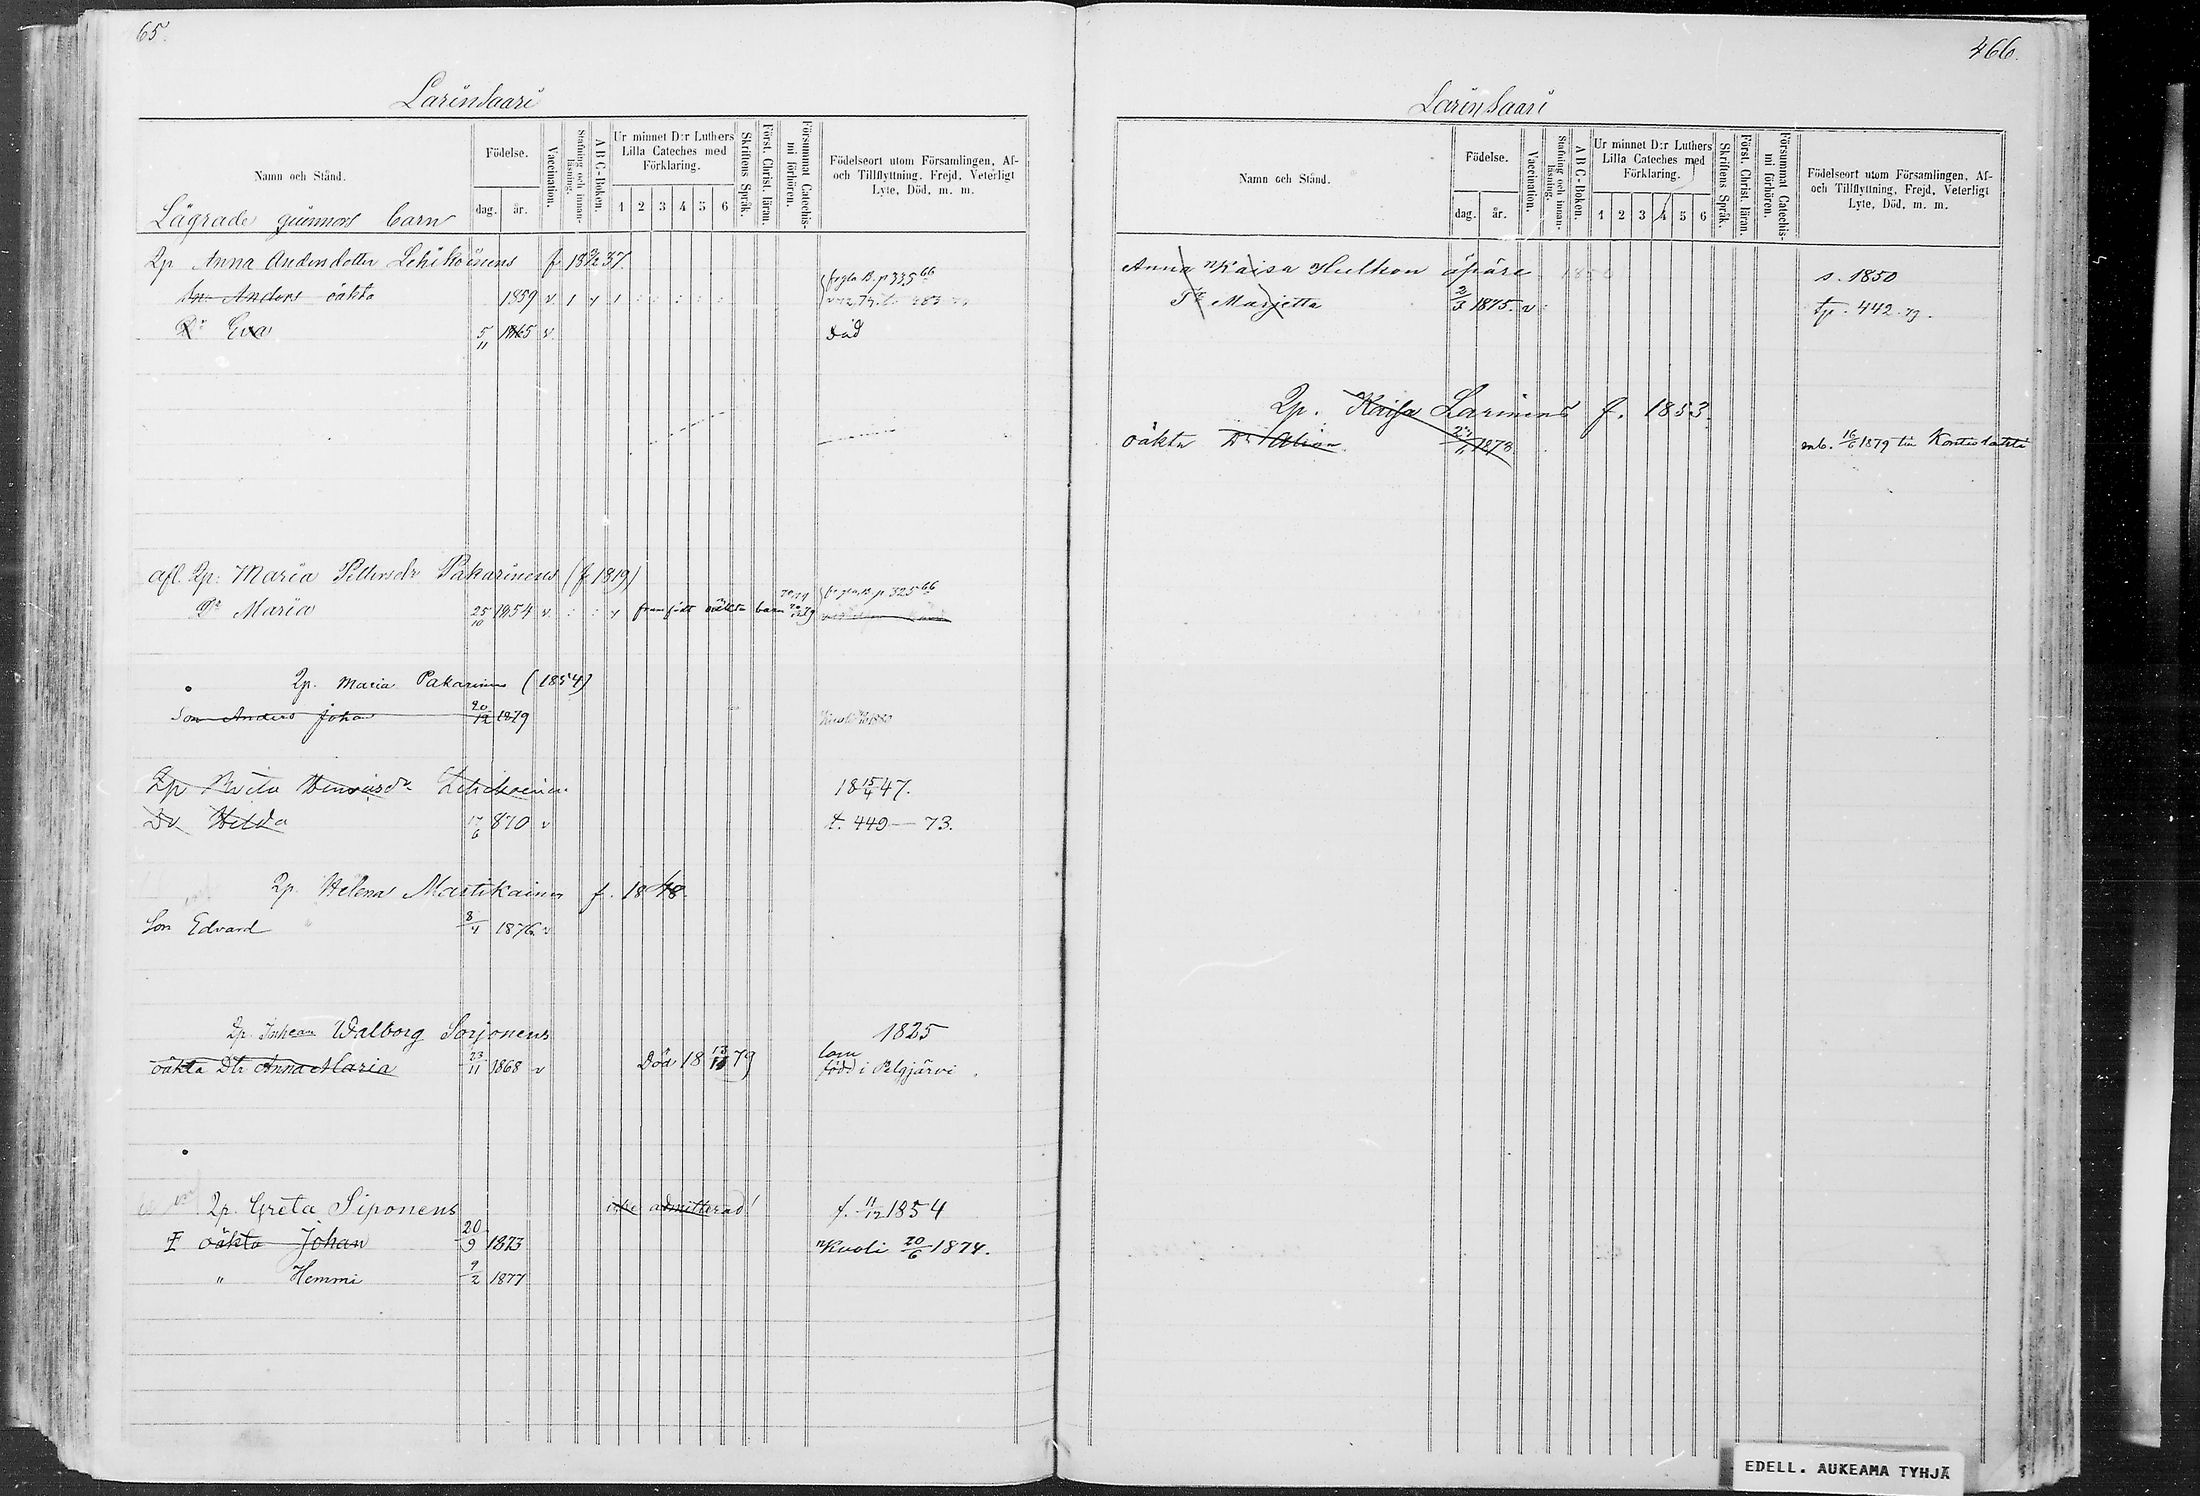 65.
Larinsaari
Namn och Stånd.
Födelse.
dag.
år.
Vaccination.
Stafning och innan-
läsning.
A B C-Boken.
Ur minnet D:r Luthers
Lilla Cateches med
Förklaring.
1 2 3 4 5 6
Skriftens Språk.
Först. Christ. läran.
Försummat Catechis-
mi förhören.
Födelseort utom Församlingen, Af-
och Tillflyttning, Frejd, Veterligt
Lyte, Död, m. m.
Lägrade qvinnors barn
Qp Anna Andersdotter Lehikoinens f 18 37.
Sn Anders oäkta 1859 v p 335 66
Dr Eva 5/11 1865 v Död
afl. Qp: Maria Pettersdr Pakarinens (f 1819)
Dr Maria 25/10 1854 v. framfödt oäkta barn 20/12 79 p 325 66
Qp. Maria Pakarinens (1854)
Son Anders Johan 20/12 1879
Qp Brita Henriksdr Lehikoinen 18 15/4 47.
Dr Helda 17/6 870 v t. 449 — 73.
Qp. Helena Martikainen f. 1848.
Son Edvard 8/4 1876 v
Qp. Inhean Walborg Sorjonens 1825
oäkta Dtr Anna Maria 23/11 1868 v Död 18 79 född i Pelgjärvi
Qp. Greta Siponens icke admitterad! f. 11/12 1854
I oäkta Johan 20/9 1873 Kuoli 20/6 1874.
" Hemmi 9/2 1877
466.
Larinsaari
Namn och Stånd.
Födelse.
dag.
år.
Vaccination.
Stafning och innan-
läsning.
A B C-Boken.
Ur minnet D:r Luthers
Lilla Cateches med
Förklaring.
1 2 3 4 5 6
Skriftens Språk.
Först. Christ. läran.
Försummat Catechis-
mi förhören.
Födelseort utom Församlingen, Af-
och Tillflyttning, Frejd, Veterligt
Lyte, Död, m. m.
Anna Kaisa Hulkon äpäre s. 1850
Tr Marjetta 2/3 1875. v tp. 442. 79.
Qp. Kaisa Larinens f. 1853.
oäkta Dr 1873. 16/6 1879 till Kontiolahti
EDELL. AUKEAMA TYHJÄ